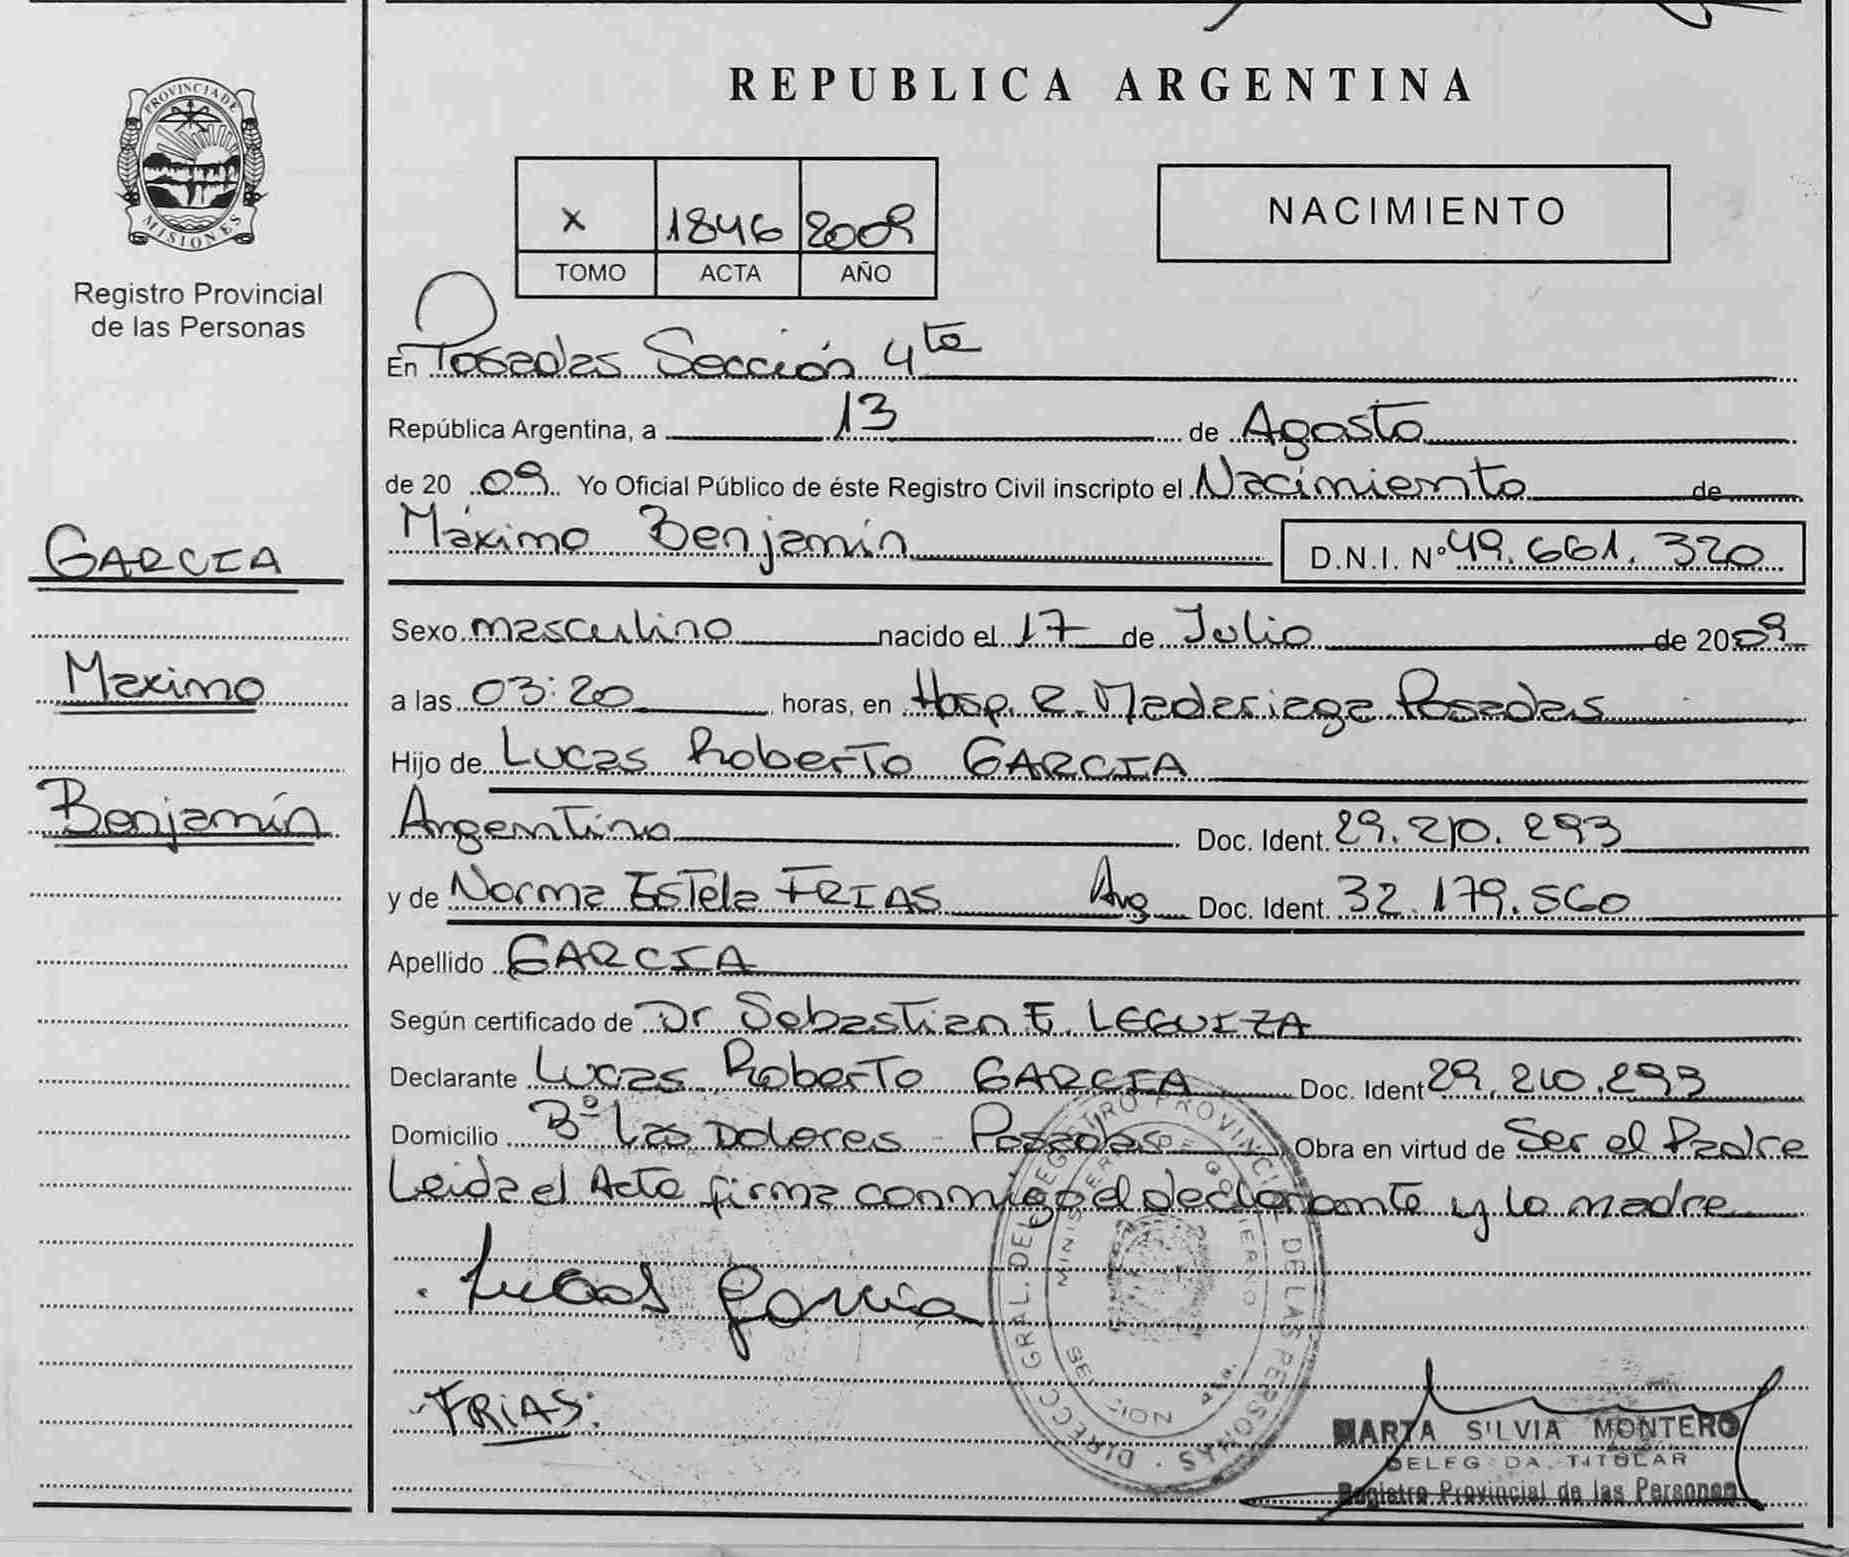 PROVINCIA DE
MISIONES
Registro Provincial
de las Personas
GARCIA
Maximo
Benjamín
REPUBLICA ARGENTINA
X 1846 2009
TOMO ACTA AÑO
NACIMIENTO
En Posadas Sección 4ta
República Argentina, a 13 de Agosto
de 20 09 Yo Oficial Público de éste Registro Civil inscripto el Nacimiento de
Máximo Benjamín D.N.I. Nº 49.661.320
Sexo masculino nacido el 17 de Julio de 2009
a las 03:20 horas, en Hosp. R. Madariaga Posadas
Hijo de Lucas Roberto GARCIA
Argentino Doc. Ident. 29.210.293
y de Norma Estela FRIAS Arg Doc. Ident. 32.179.560
Apellido GARCIA
Según certificado de Dr Sebastian E. LEGUIZA
Declarante Lucas Roberto GARCIA Doc. Ident 29.210.293
Domicilio Bº Las Dolores - Posadas Obra en virtud de Ser el Padre
Leida el Acta firma conmigo el declarante y la madre
Lucas Garcia
FRIAS
DIRECC. GRAL. DEL REGISTRO PROVINCIAL DE LAS PERSONAS
MINISTERIO DE GOBIERNO
MARTA SILVIA MONTERO
DELEGADA TITULAR
Registro Provincial de las Personas